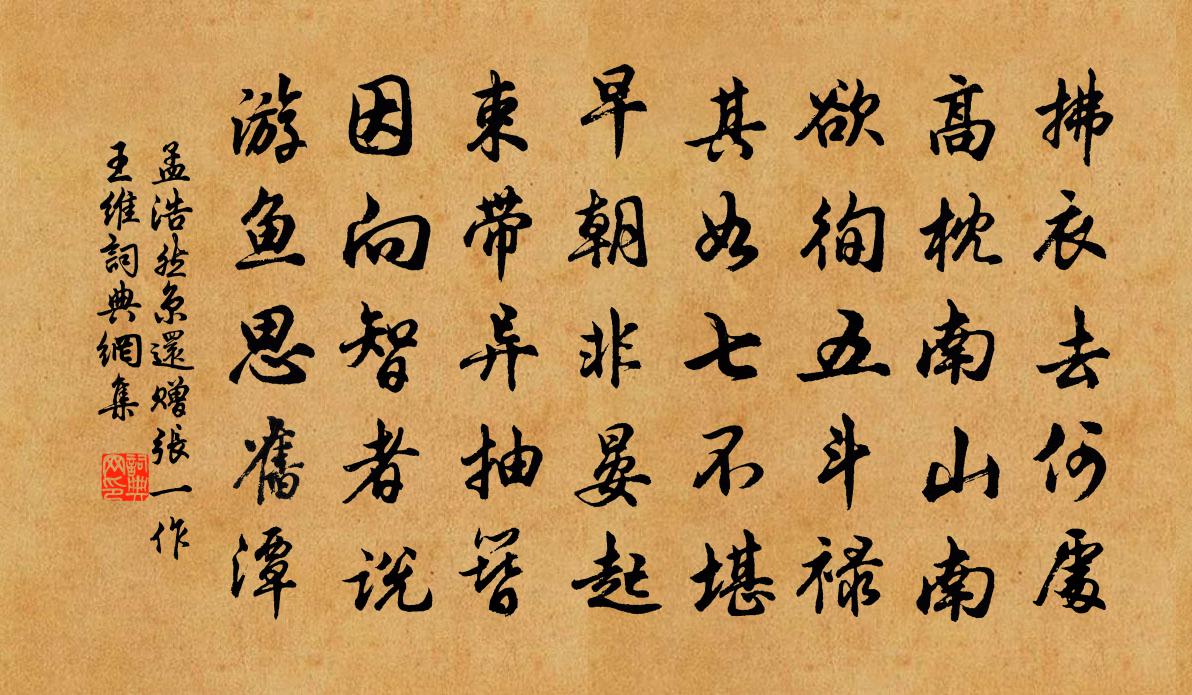 拂衣去何處
高枕南山南
欲徇五斗禄
其如七不堪
早朝非晏起
束带异抽簪
因向智者说
游鱼思舊潭
孟浩然京還赠張一作
王維詞典網集
詞典
网印